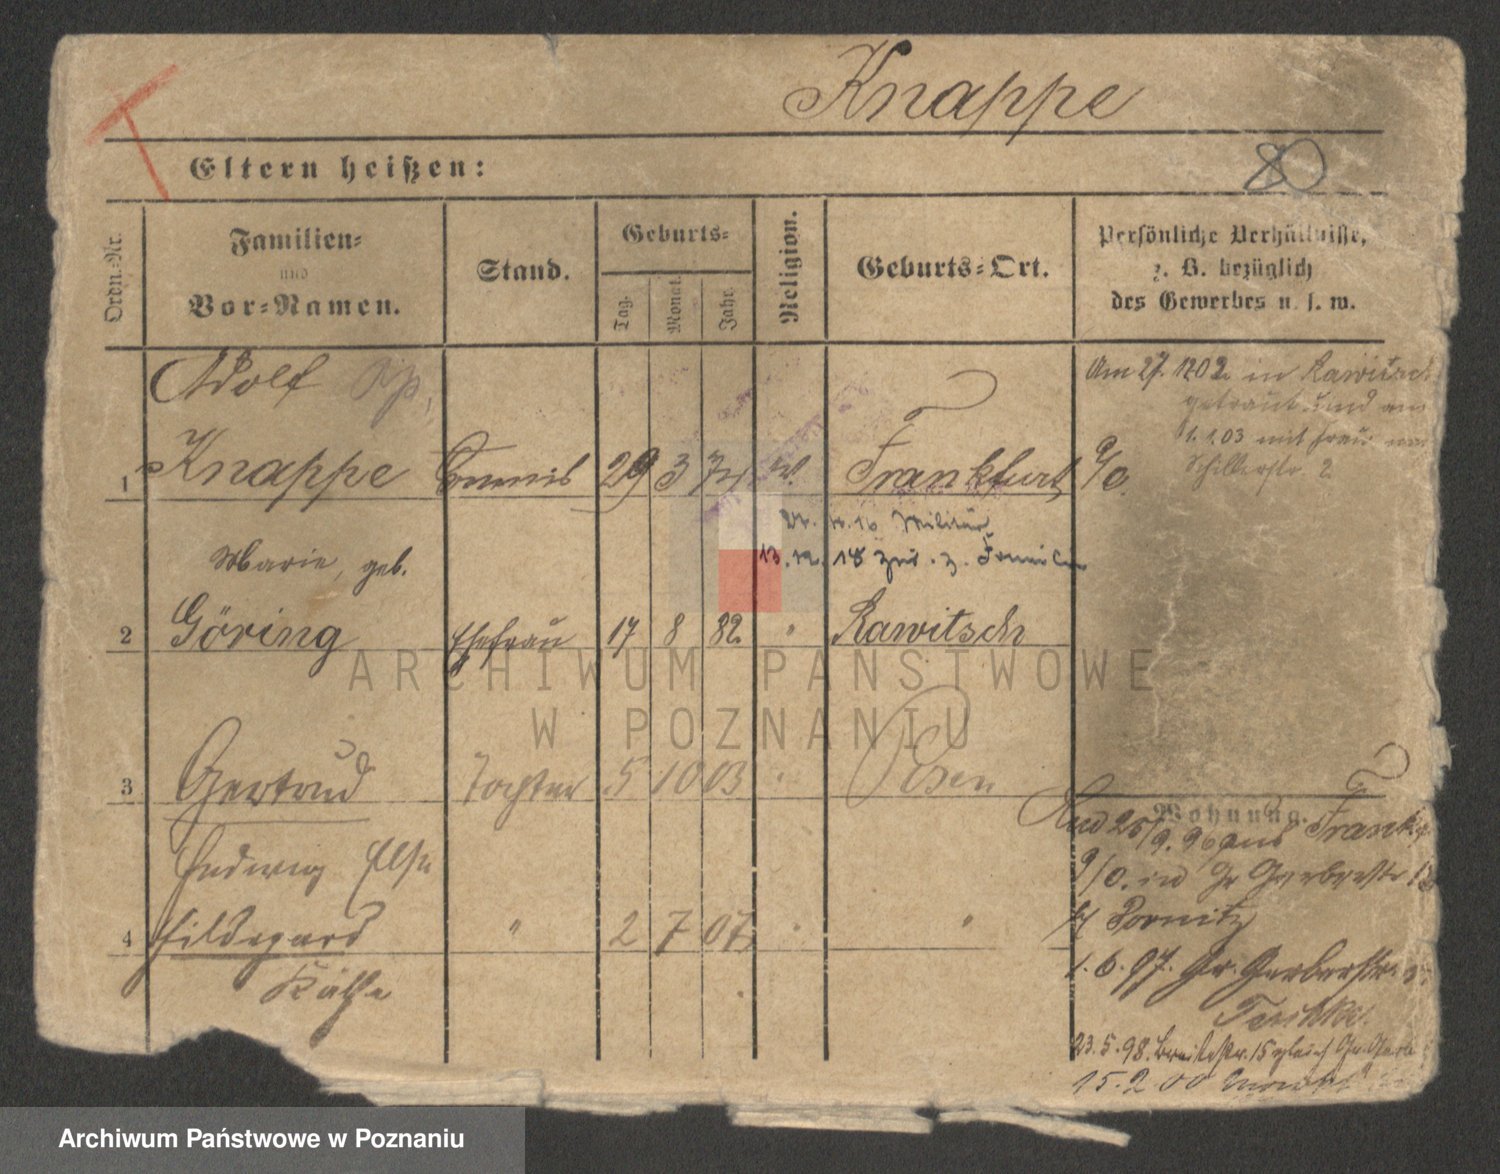 Knappe
80
Eltern heißen:
Ordn.-Nr.
Familien-
und
Vor-Namen.
Stand.
Geburts-
Tag.
Monat.
Jahr.
Religion.
Geburts-Ort.
Persönliche Verhältnisse,
z. B. bezüglich
des Gewerbes u. s. w.
Adolf
1 Knappe Commis 29 3 Frankfurt a/O.
Am 27. 12 02 in Rawitsch
getraut und am
1. 1. 03 mit Frau
Schillerstr. 2
Militär
13. 12. 18 zur. z. Familie
Marie, geb.
2 Göring Ehefrau 17 8 82 " Rawitsch
3 Gertrud Tochter 5 10 03 " Posen
Hedwig Else
4 Hildegard " 2 7 07 " "
Käthe
Wohnung.
25/9. 96 aus Frankf.
a/O. in Gr Gerberstr
1. 6. 97. Gr. Gerberstr.
23. 5. 98. Breitestr. 15 gleich Gr. Gerb
15. 2. 00
ARCHIWUM PAŃSTWOWE
W POZNANIU
Archiwum Państwowe w Poznaniu